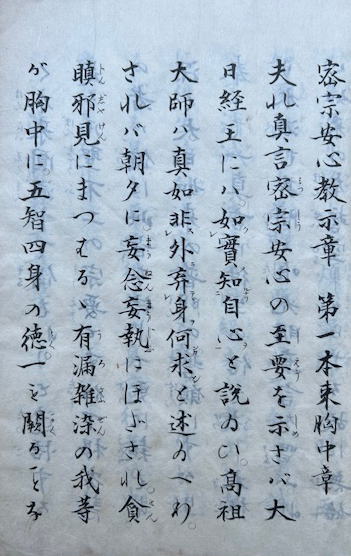 密宗安心教示章　第一本来胸中章
夫れ真言密宗安心の至要を示さバ大
日経王にハ如實知自心と説のひ髙祖
大師ハ真如非外弃身何求と述のへり
されバ朝夕に妄念妄執にほだされ貪
瞋邪見にまつむるゝ有漏雑染の我等
が胸中に五智四身の徳一も闕るゝ